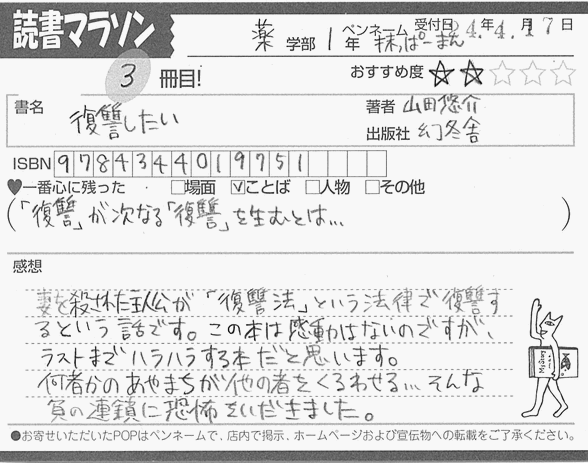 読書マラソン
薬 学部 1 年 ペンネーム 抹ぱーまん 受付日 24年 4月 17日
3 冊目! おすすめ度 ★★☆☆☆
書名 復讐したい 著者 山田悠介
出版社 幻冬舎
ISBN 9784344019751
♥一番心に残った □場面 ☑ことば □人物 □その他
(「復讐」が次なる「復讐」を生むとは… )
感想
妻を殺された主人公が「復讐法」という法律で復讐す
るという話です。この本は感動はないのですが、
ラストまでハラハラする本だと思います。
何者かのあやまちが他の者をくるわせる…そんな
負の連鎖に恐怖をいだきました。
●お寄せいただいたPOPはペンネームで、店内で掲示、ホームページおよび宣伝物への転載をご了承ください。